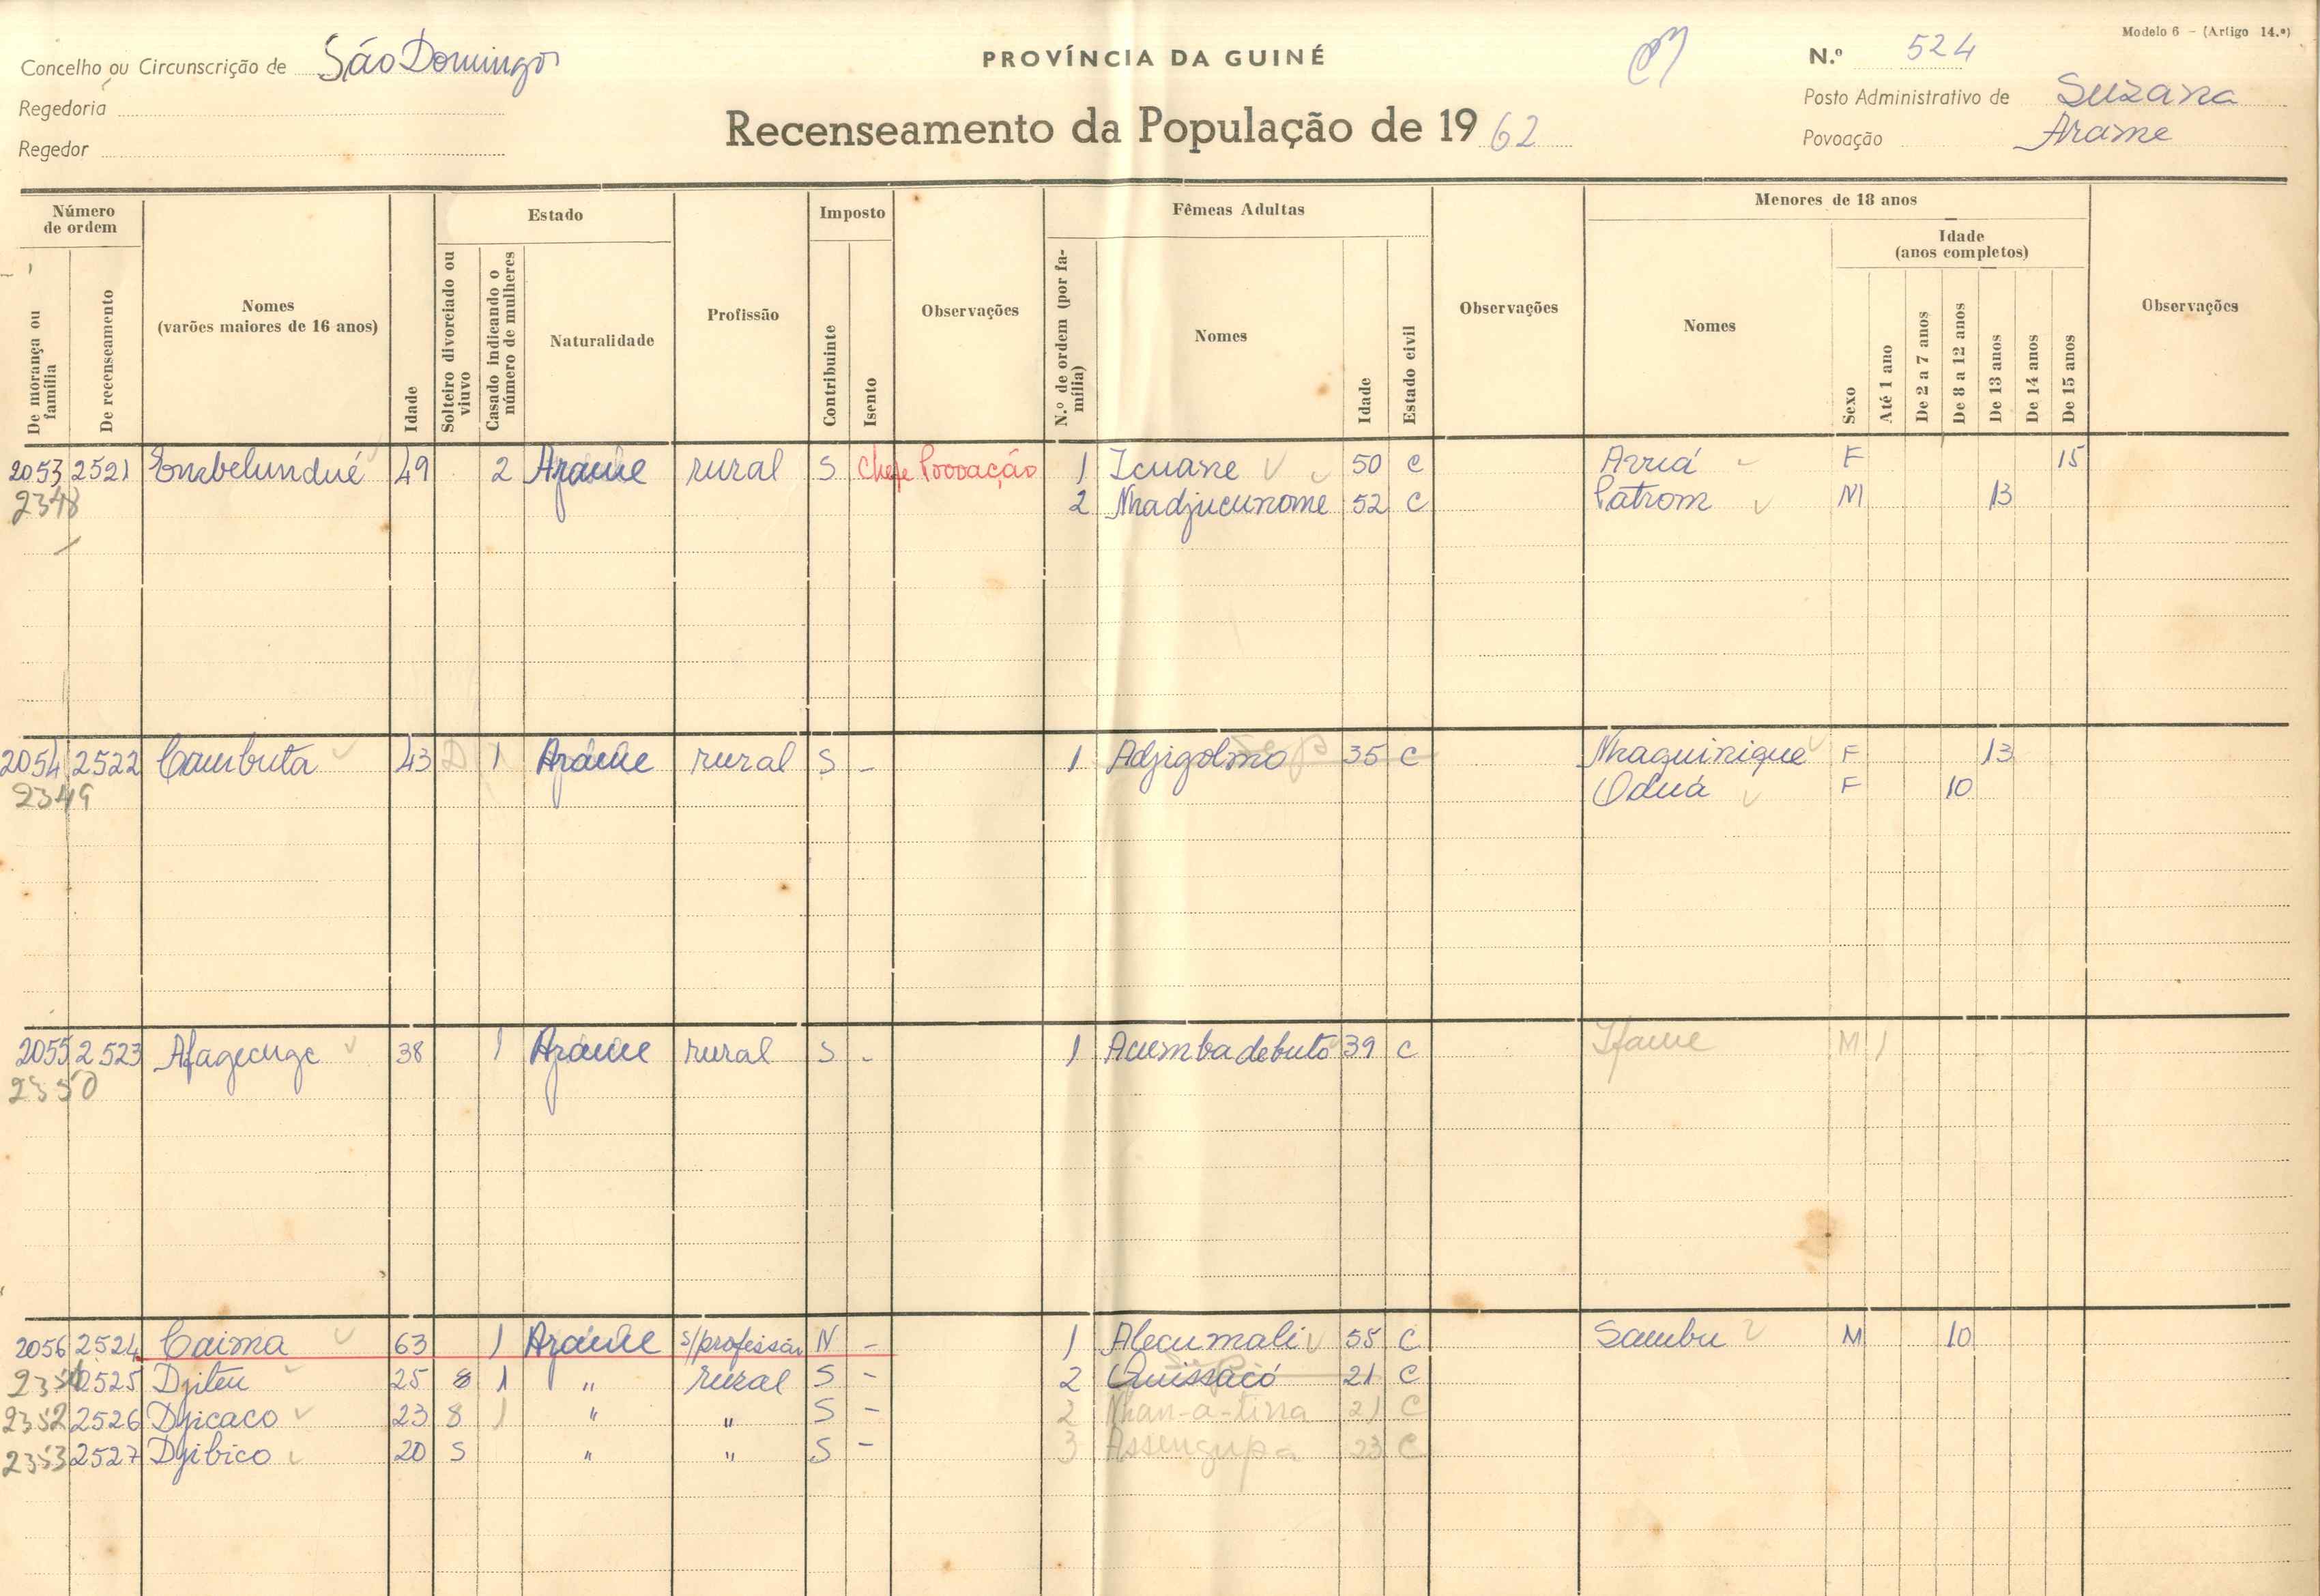 Modelo 6 - (Artigo 14.º)
Concelho ou Circunscrição de São Domingos
PROVÍNCIA DA GUINÉ
N.º 524
Regedoria
Posto Administrativo de Suzana
Recenseamento da População de 1962
Regedor
Povoação Arame
Número de ordem
De morança ou família
De recenseamento
Nomes (varões maiores de 16 anos)
Idade
Estado
Solteiro divorciado ou viuvo
Casado indicando o número de mulheres
Naturalidade
Profissão
Imposto
Contribuinte
Isento
Observações
Fêmeas Adultas
N.º de ordem (por família)
Nomes
Idade
Estado civil
Observações
Menores de 18 anos
Nomes
Sexo
Idade (anos completos)
Até 1 ano
De 2 a 7 anos
De 8 a 12 anos
De 13 anos
De 14 anos
De 15 anos
Observações
2053 2521 Embelundué 49 2 Arame rural S Chefe Povoação 1 Icuane 50 C Arriá F 15
2348 2 Nhadjucunome 52 C Patrom M 13
2054 2522 Cambuta 43 D 1 Arame rural S - 1 Adjigolmo 35 C Nhaquinique F 13
2349 Oduá F 10
2055 2523 Afagecuge 38 1 Arame rural S - 1 Acumbadebuto 39 C Ifame M 1
2350
2056 2524 Caima 63 1 Arame s/profissão N - 1 Alecumali 55 C Sambu M 10
2351 2525 Djiteu 25 S 1 " rural S - 2 Quissacó 21 C
2352 2526 Djicaco 23 S 1 " " S - 2 Nhan-a-tina 21 C
2353 2527 Djibico 20 S " " S - 3 Assengupa 23 C